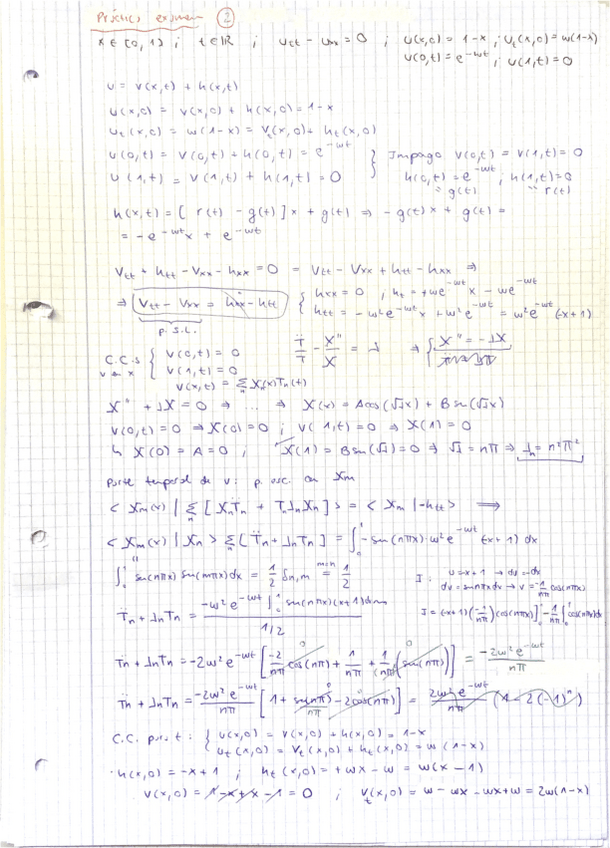 Práctico examen ②
x ∈ [0,1] ; t ∈ ℝ ; u_tt - u_xx = 0 ; u(x,0) = 1-x ; u_t(x,0) = w(1-x)
u(0,t) = e^{-wt} ; u(1,t) = 0
u = v(x,t) + h(x,t)
u(x,0) = v(x,0) + h(x,0) = 1-x
u_t(x,0) = w(1-x) = v_t(x,0) + h_t(x,0)
u(0,t) = v(0,t) + h(0,t) = e^{-wt} } Impongo v(0,t) = v(1,t) = 0
u(1,t) = v(1,t) + h(1,t) = 0 h(0,t) = e^{-wt} ; h(1,t) = 0
= g(t) = r(t)
h(x,t) = [r(t) - g(t)]x + g(t) ⇒ -g(t)x + g(t) =
= -e^{-wt}x + e^{-wt}
v_tt + h_tt - v_xx - h_xx = 0 = v_tt - v_xx + h_tt - h_xx ⇒
⇒ v_tt - v_xx = h_xx - h_tt { h_xx = 0 ; h_t = +we^{-wt}x - we^{-wt}
h_tt = -w²e^{-wt}x + w²e^{-wt} = w²e^{-wt}(-x+1)
p. S.L.
C.C.s v en x { v(0,t) = 0
v(1,t) = 0
T̈/T - X''/X = λ ⇒ { X'' = -λX
v(x,t) = Σ_n X_n(x)T_n(t)
X'' + λX = 0 ⇒ ... ⇒ X(x) = A cos(√λx) + B sen(√λx)
v(0,t) = 0 ⇒ X(0) = 0 ; v(1,t) = 0 ⇒ X(1) = 0
↳ X(0) = A = 0 ; X(1) = B sen(√λ) = 0 ⇒ √λ = nπ ⇒ λ_n = n²π²
Parte temporal de v: p. esc. con X_m
< X_m(x) | Σ_n [X_nT̈_n + T_nλ_nX_n] > = < X_m | -h_tt > ⟹
< X_m(x) | X_n > Σ_n [T̈_n + λ_nT_n] = ∫_0^1 -sen(nπx)·w²e^{-wt}(-x+1) dx
∫_0^1 sen(nπx) sen(mπx)dx = 1/2 δ_{n,m} =^{m=n} 1/2
I: u = -x+1 → du = -dx
dv = sen nπx dx → v = -1/nπ cos(nπx)
T̈_n + λ_nT_n = -w²e^{-wt} ∫_0^1 sen(nπx)(-x+1)dx / 1/2
I = (-x+1)(-1/nπ)cos(nπx)]_0^1 - 1/nπ ∫_0^1 cos(nπx)dx
T̈_n + λ_nT_n = -2w²e^{-wt} [-2/nπ cos(nπ) + 1/nπ + 1/(nπ)² (sen(nπ))] = -2w²e^{-wt}/nπ
T̈_n + λ_nT_n = -2w²e^{-wt}/nπ [1 + sen(nπ)/nπ - 2cos(nπ)] = 2w²e^{-wt}/nπ (1 - 2(-1)^n)
C.C. para t: { u(x,0) = v(x,0) + h(x,0) = 1-x
u_t(x,0) = v_t(x,0) + h_t(x,0) = w(1-x)
· h(x,0) = -x+1 ; h_t(x,0) = +wx - w = w(x-1)
v(x,0) = 1-x+x-1 = 0 ; v_t(x,0) = w - wx - wx + w = 2w(1-x)